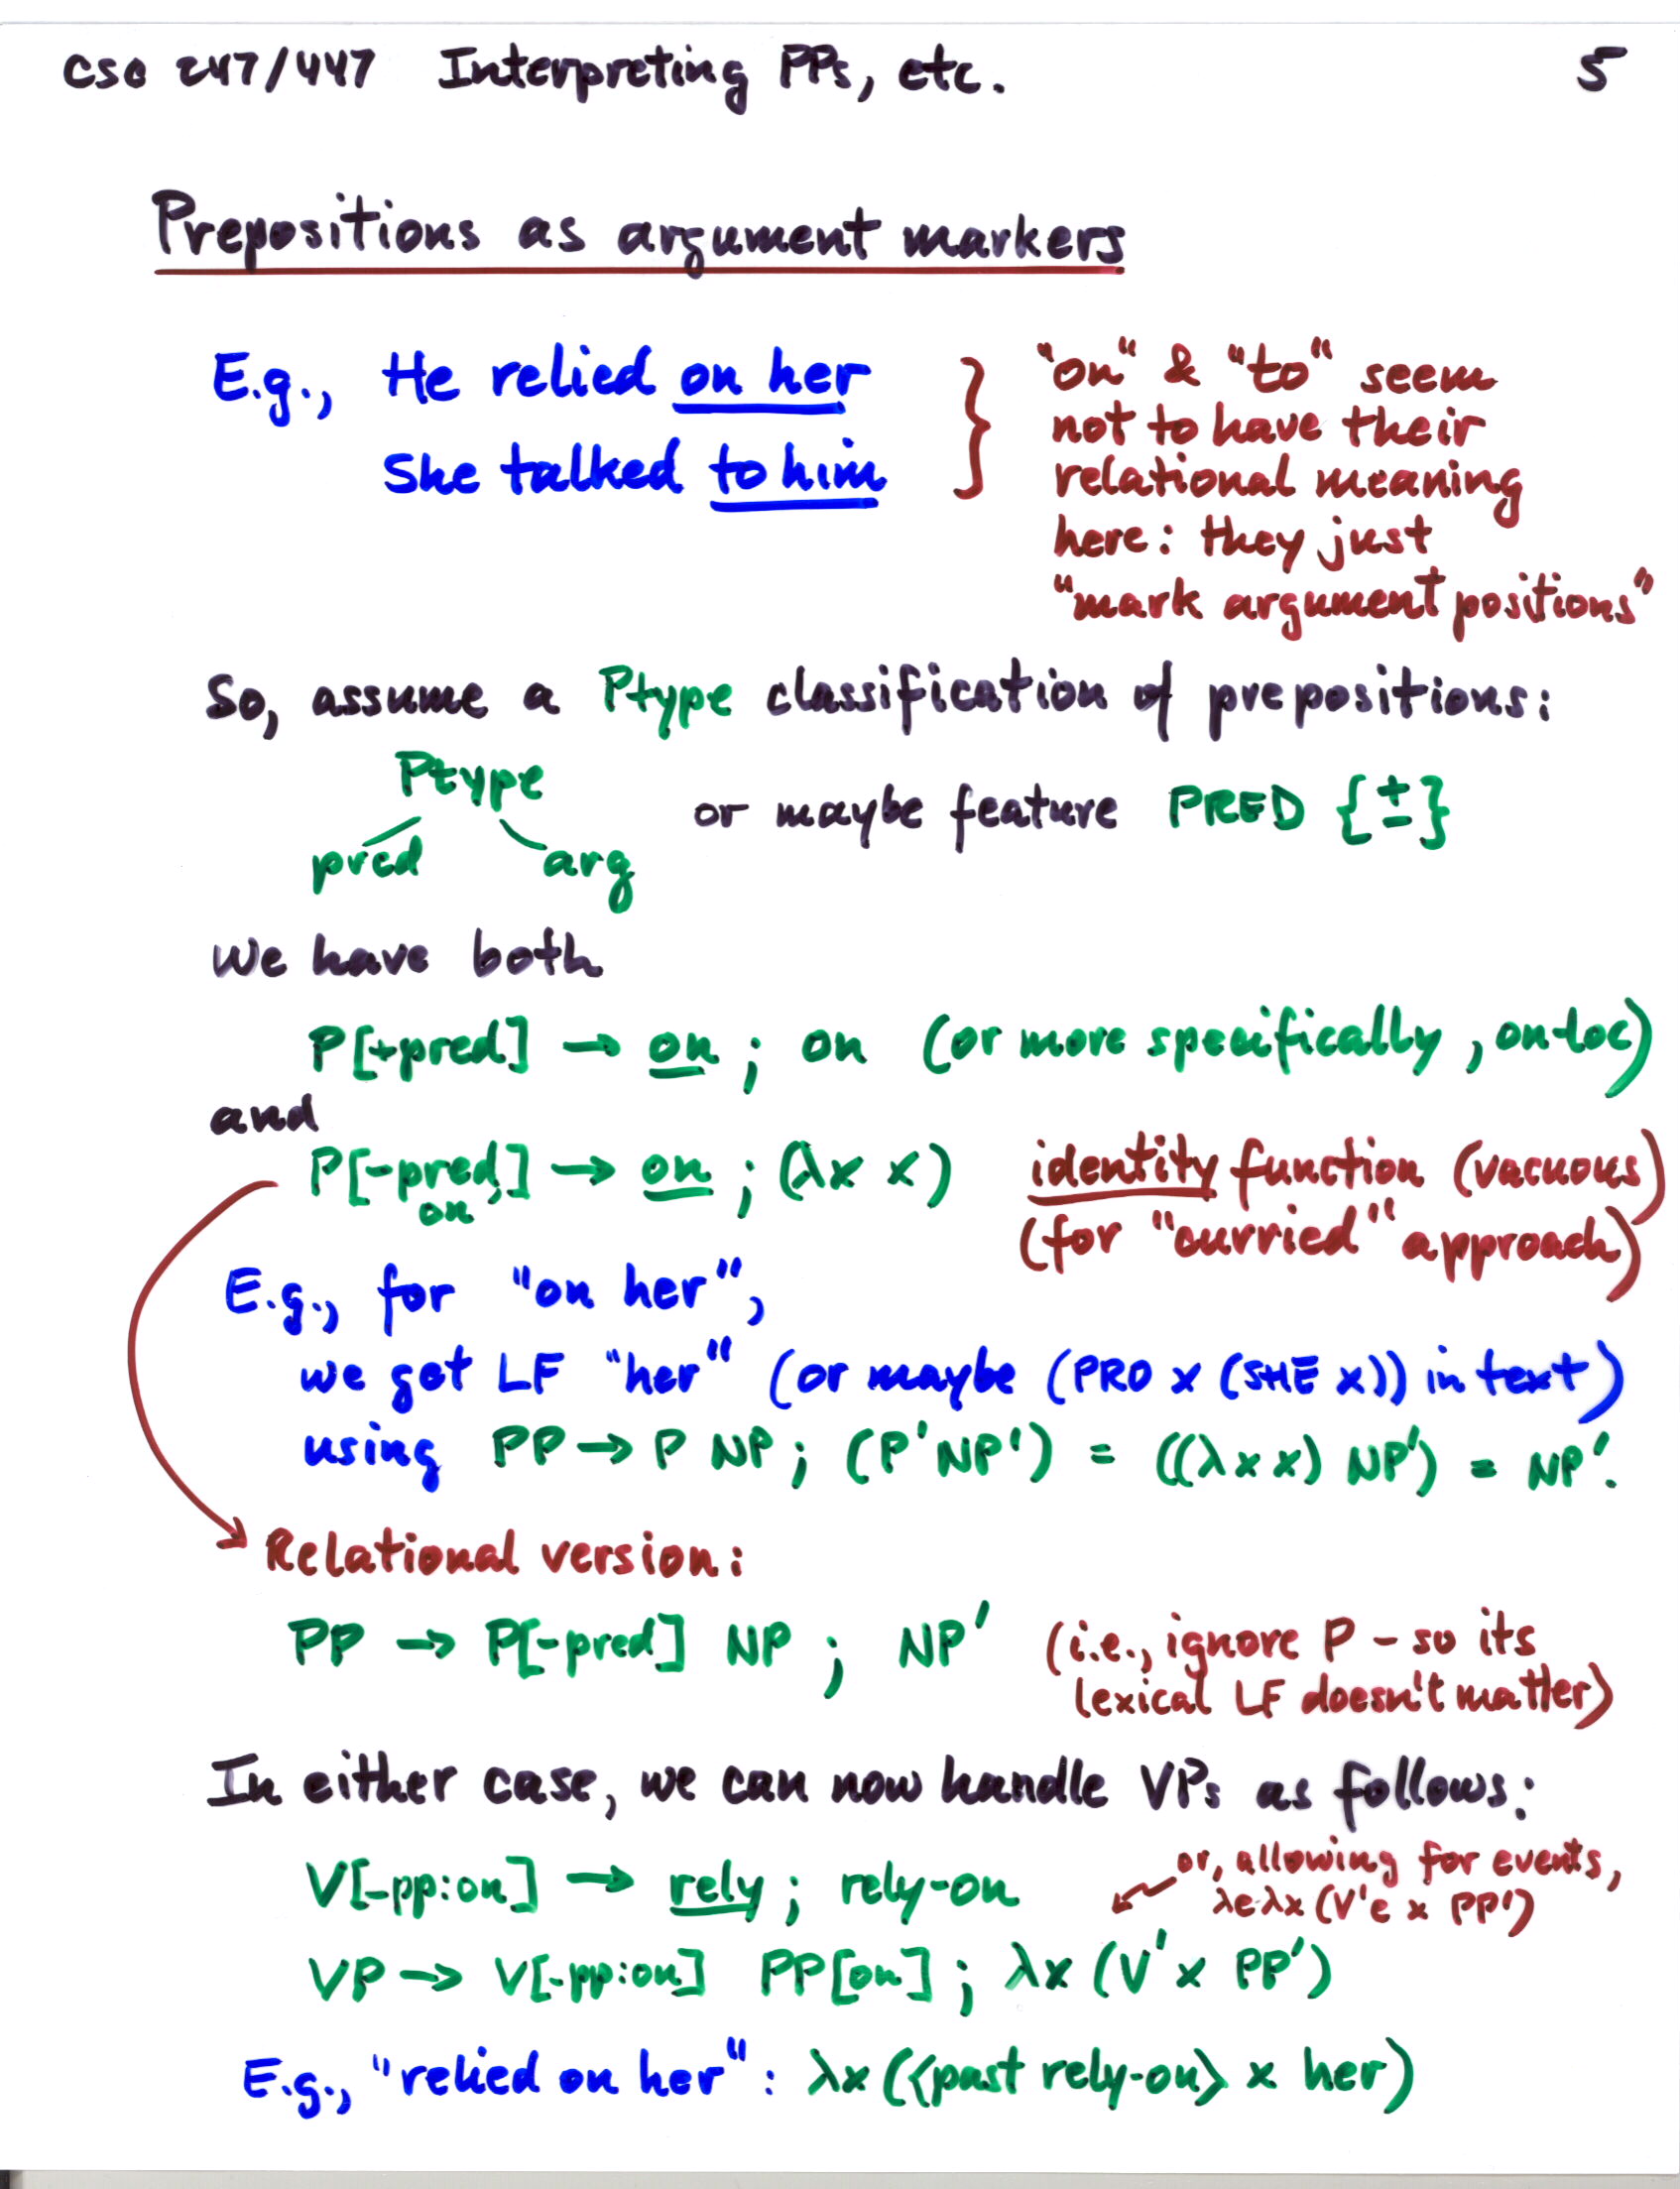 CSC 247/447 Interpreting PPs, etc. 5
Prepositions as argument markers
E.g., He relied on her } "on" & "to" seem
not to have their
She talked to him relational meaning
here: they just
"mark argument positions"
So, assume a Ptype classification of prepositions:
Ptype
or maybe feature PRED {±}
pred arg
We have both
P[+pred] → on ; on (or more specifically, on-loc)
and
P[-pred,] → on ; (λx x) identity function (vacuous)
on (for "curried" approach)
E.g., for "on her",
we get LF "her" (or maybe (PRO x (SHE x)) in text)
using PP → P NP ; (P' NP') = ((λx x) NP') = NP'.
Relational version:
PP → P[-pred] NP ; NP' (i.e., ignore P - so its
lexical LF doesn't matter)
In either case, we can now handle VPs as follows:
V[-pp:on] → rely ; rely-on or, allowing for events,
λeλx (V'e x PP')
VP → V[-pp:on] PP[on] ; λx (V' x PP')
E.g., "relied on her": λx (<past rely-on> x her)